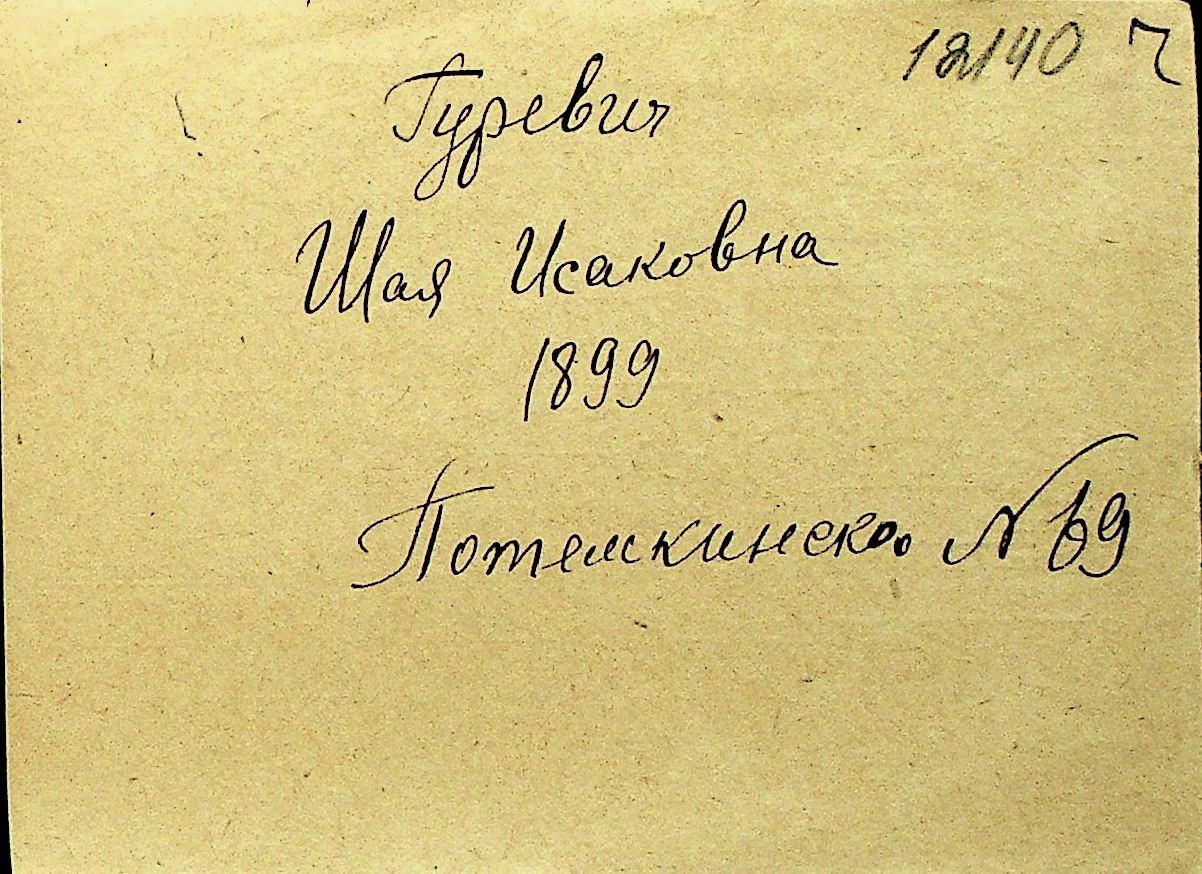 12140 ч
Гуревич
Шая Исаковна
1899
Потемкинско. № 69